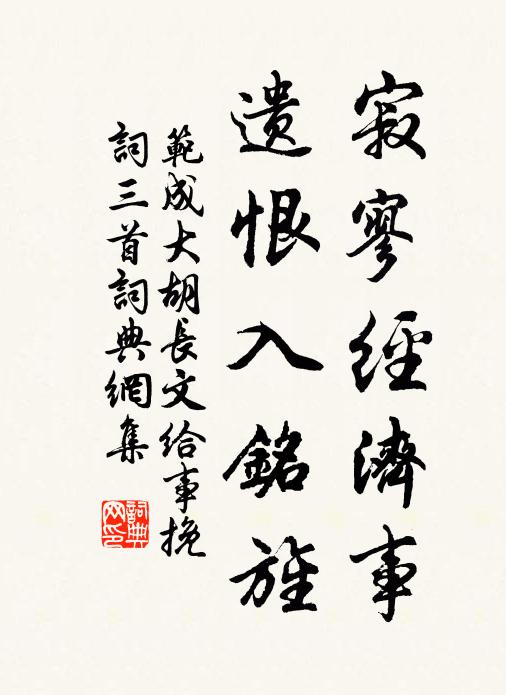 寂寥經濟事
遺恨入銘旌
範成大胡長文給事挽
詞三首詞典網集
詞典网印